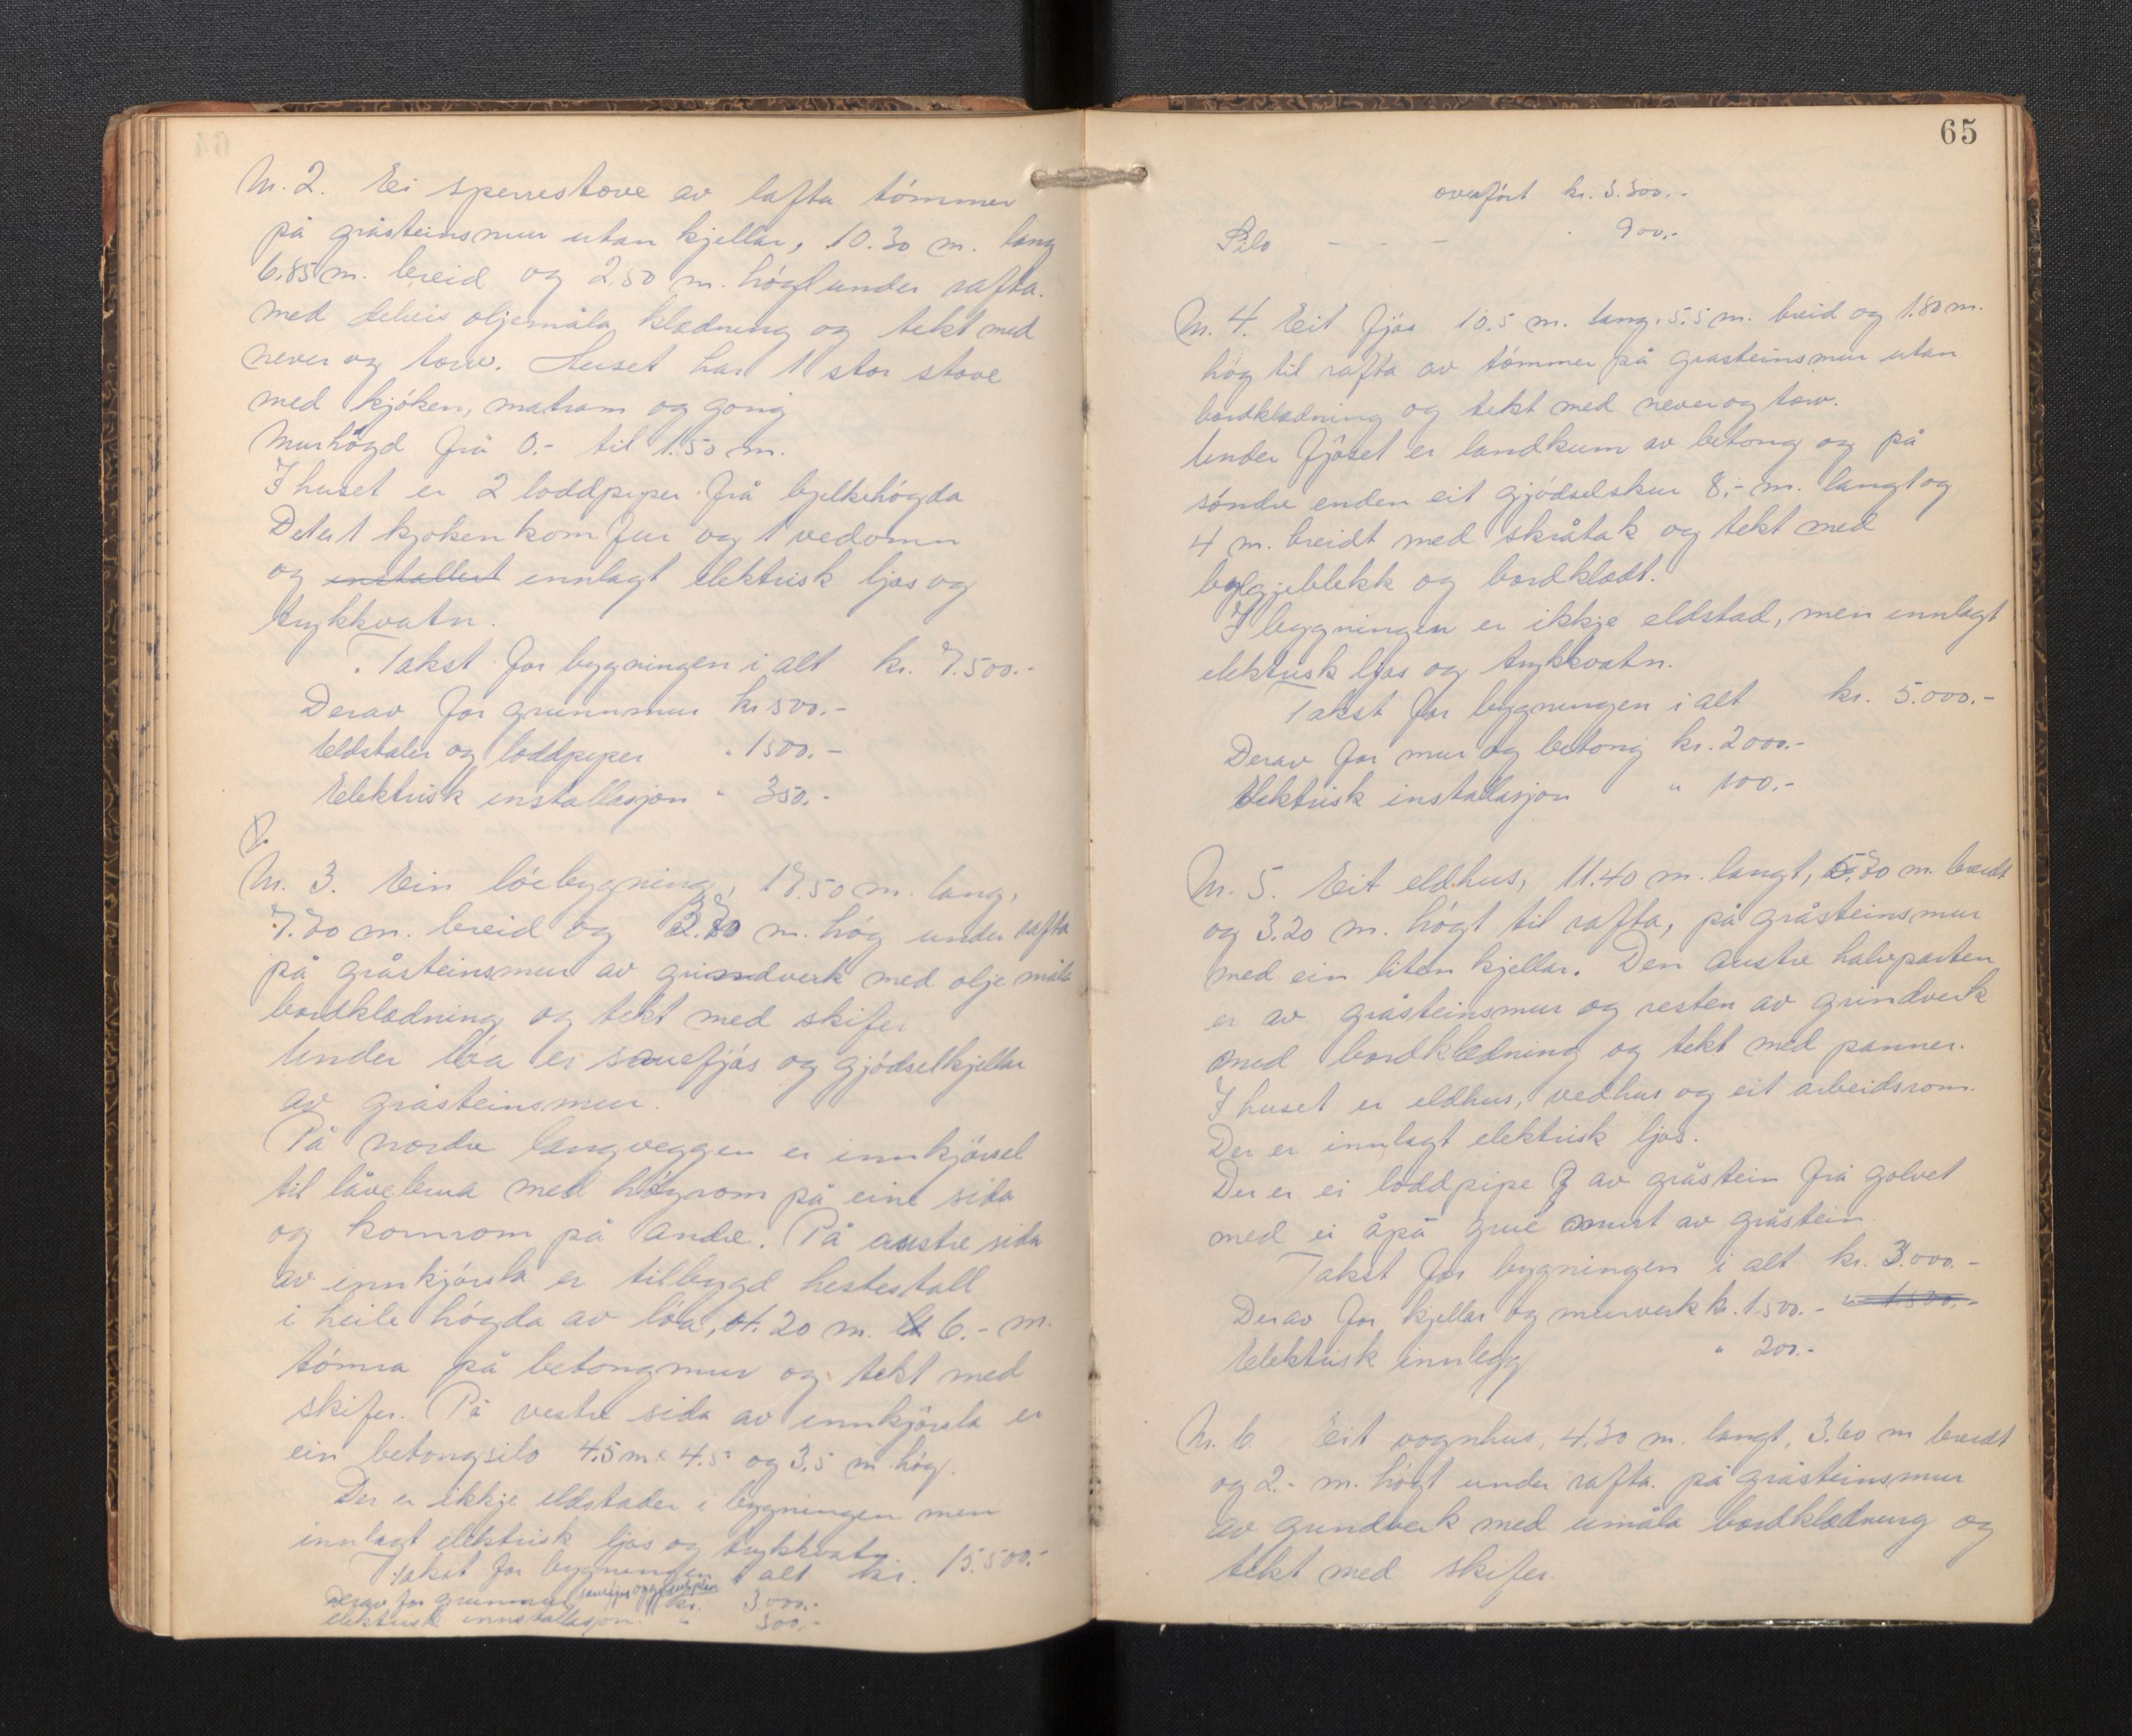 N. 2. Ei sperrestove av lafta tömmer
på gråsteinsmur utan kjellar, 10.30 m. lang
6.85 m. breid og 2.50 m. högt under rafta.
med delvis oljemåla klædning og tekt med
never og torv. Huset har 1 stor stove
med kjöken, matrom og gong
Murhögd frå 0.- til 1.50 m.
I huset er 2 loddpiper frå bjelkehögda
Det er 1 kjoken komfur og 1 vedomn
og installert innlagt elektrisk ljos og
trykkvatn.
Takst for bygningen i alt kr. 7.500.-
Derav for grunnmur kr 500.-
Eldstader og loddpiper " 1500.-
Elektrisk installasjon " 350.-
N. 3. Ein löebygning, 17.50 m. lang,
7.70 m. breid og m. hög under rafta
på gråsteinsmur av grindverk med olje måla
bordklædning og tekt med skifer
Under löa er sauefjös og gjödselkjellar
av gråsteinsmur.
På nordre langveggen er innkjörsel
til låvebrua med höyrom på eine sida
og kornrom på andre. På austre sida
av innkjörsla er tilbygd hestestall
i heile högda av löa, 4.20 m. x 6.- m.
tömra på betongmur og tekt med
skifer. På vestre sida av innkjörsla er
ein betongsilo 4.5 m x 4.5 og 3.5 m hög.
Der er ikkje eldstader i bygningen men
innlagt elektrisk ljos og trykkvatn.
Takst for bygningen i alt kr. 15.500.-
Derav for grunnmur sauefjos og kr. 3000.-
elektrisk innstallasjon. " 300.-
65
overfört kr. 3.300.-
Silo - - - 900.-
N. 4. Eit fjös 10.5 m. lang, 5.5 m. breid og 1.80 m.
hög til rafta av tömmer på grasteinsmur utan
bordklædning og tekt med never og torv.
Under fjöset er landkum av betong og på
söndre enden eit gjödselskur 8.- m. langt og
4 m. breidt med skråtak og tekt med
bylgjeblekk og bordklædt.
I bygningen er ikkje eldstad, men innlagt
elektrisk ljos og trykkvatn.
Takst for bygningen i alt kr. 5.000.-
Derav for mur og betong kr. 2000.-
Elektrisk installasjon " 100.-
N. 5. Eit eldhus, 11.40 m. langt, 5.70 m. breidt
og 3.20 m. högt til rafta, på gråsteinsmur
med ein liten kjellar. Den austre halvparten
er av gråsteinsmur og resten av grindverk
med bordklædning og tekt med panner.
I huset er eldhus, vedhus og eit arbeidsrom.
Der er innlagt elektrisk ljos.
Der er ei loddpipe av gråstein frå golvet
med ei åpå grue murt av gråstein
Takst for bygningen i alt kr. 3.000.-
Derav for kjellar og murverk kr. 1.500.- " 1.500.-
Elektrisk innlegg " 200.-
N. 6 Eit vognhus, 4.30 m. langt, 3.60 m breidt
og 2.- m. högt under rafta. på gråsteinsmur
av grindverk med umåla bordklædning og
tekt med skifer.